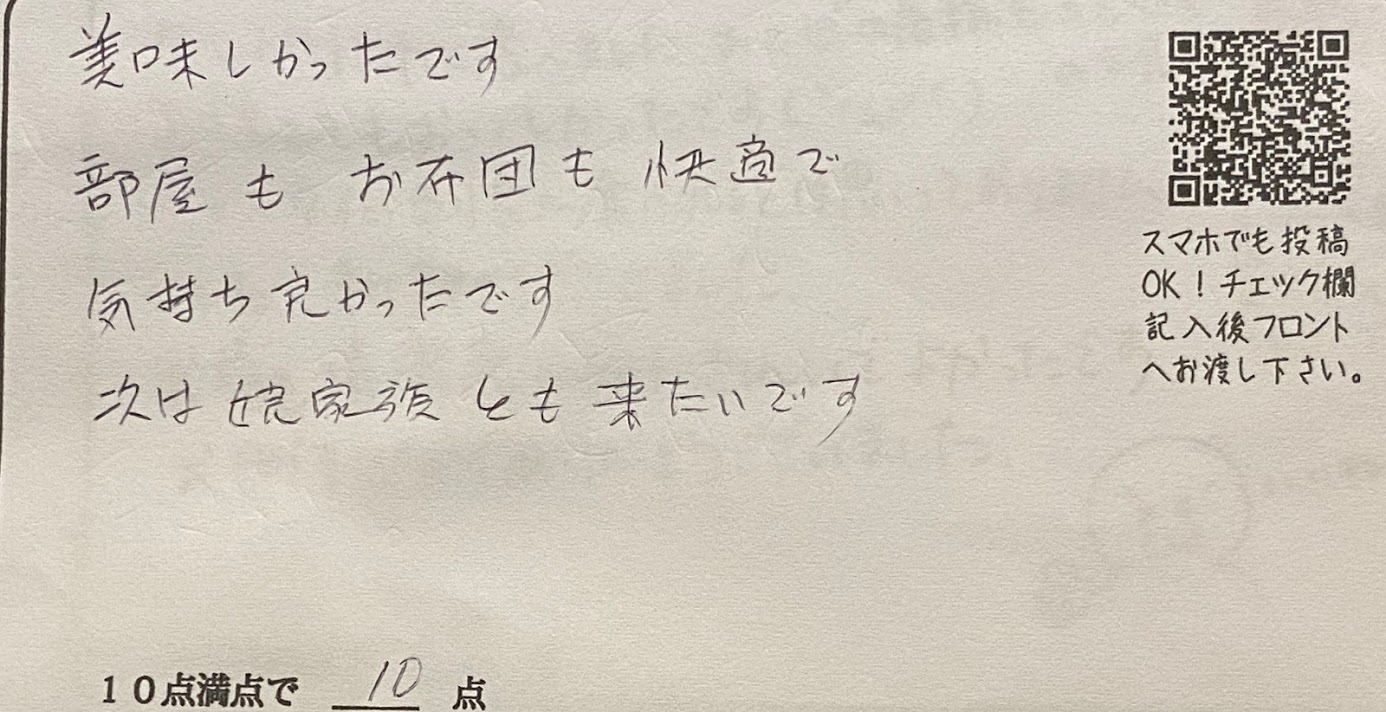 美味しかったです
部屋も お布団も 快適で
気持ち良かったです
次は 家族とも来たいです
10点満点で 10 点
スマホでも投稿
OK！チェック欄
記入後フロント
へお渡し下さい。